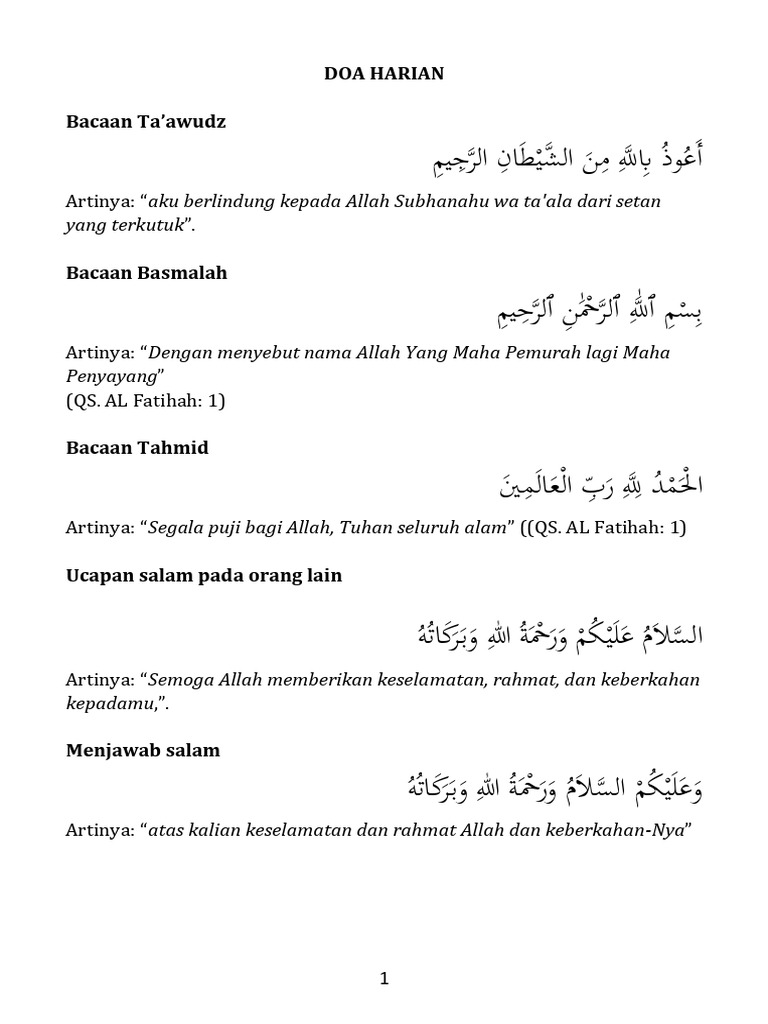 DOA HARIAN
Bacaan Ta’awudz
أَعُوذُ بِاللَّهِ مِنَ الشَّيْطَانِ الرَّجِيمِ
Artinya: “aku berlindung kepada Allah Subhanahu wa ta'ala dari setan
yang terkutuk”.
Bacaan Basmalah
بِسْمِ ٱللَّهِ ٱلرَّحْمَٰنِ ٱلرَّحِيمِ
Artinya: “Dengan menyebut nama Allah Yang Maha Pemurah lagi Maha
Penyayang”
(QS. AL Fatihah: 1)
Bacaan Tahmid
الْحَمْدُ لِلَّهِ رَبِّ الْعَالَمِينَ
Artinya: “Segala puji bagi Allah, Tuhan seluruh alam” ((QS. AL Fatihah: 1)
Ucapan salam pada orang lain
السَّلاَمُ عَلَيْكُمْ وَرَحْمَةُ اللهِ وَبَرَكَاتُهُ
Artinya: “Semoga Allah memberikan keselamatan, rahmat, dan keberkahan
kepadamu,”.
Menjawab salam
وَعَلَيْكُمْ السَّلاَمُ وَرَحْمَةُ اللهِ وَبَرَكَاتُهُ
Artinya: “atas kalian keselamatan dan rahmat Allah dan keberkahan-Nya”
1